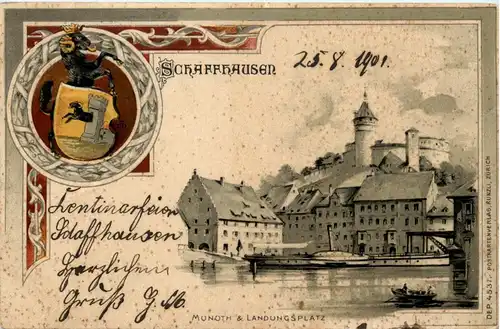 SCHAFFHAUSEN
25. 8. 1901.
Zentinarfeier
Schaffhausen
Herzlichen
Gruß G. Hb.
MUNOTH & LANDUNGSPLATZ
DEP. 4537. POSTKARTENVERLAG KÜNZLI, ZÜRICH